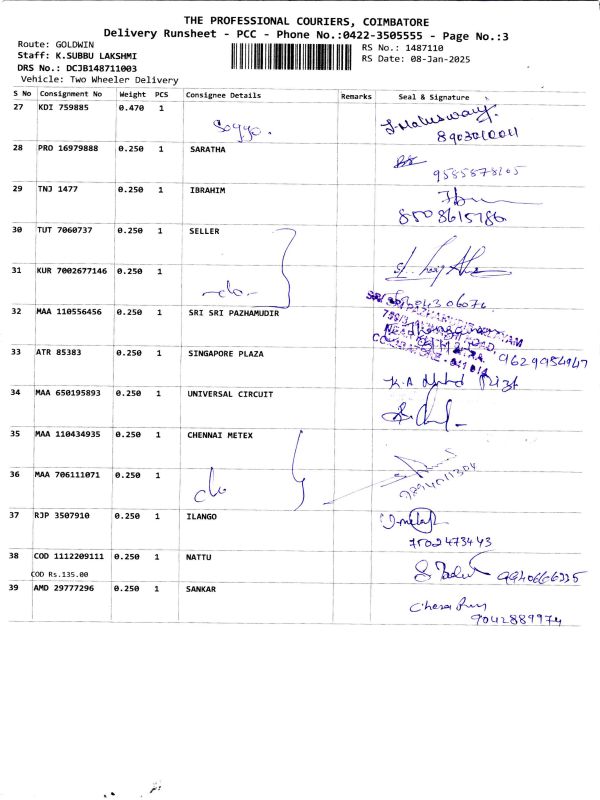 THE PROFESSIONAL COURIERS, COIMBATORE
Delivery Runsheet - PCC - Phone No.:0422-3505555 - Page No.:3
Route: GOLDWIN
Staff: K.SUBBU LAKSHMI
DRS No.: DCJB148711003
Vehicle: Two Wheeler Delivery
RS No.: 1487110
RS Date: 08-Jan-2025
S No Consignment No Weight PCS Consignee Details Remarks Seal & Signature
27 KDI 759885 0.470 1
8903010011
28 PRO 16979888 0.250 1 SARATHA
29 TNJ 1477 0.250 1 IBRAHIM
8508615786
30 TUT 7060737 0.250 1 SELLER
31 KUR 7002677146 0.250 1
-do-
32 MAA 110556456 0.250 1 SRI SRI PAZHAMUDIR
33 ATR 85383 0.250 1 SINGAPORE PLAZA
9629954947
34 MAA 650195893 0.250 1 UNIVERSAL CIRCUIT
35 MAA 110434935 0.250 1 CHENNAI METEX
36 MAA 706111071 0.250 1
do
9894011304
37 RJP 3507910 0.250 1 ILANGO
7502473443
38 COD 1112209111 0.250 1 NATTU
COD Rs.135.00
9940666235
39 AMD 29777296 0.250 1 SANKAR
9042889974